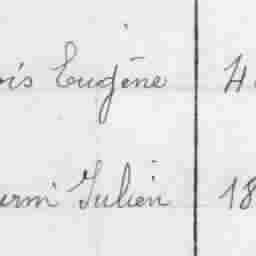 ois Eugène 4
urmi Julien 18